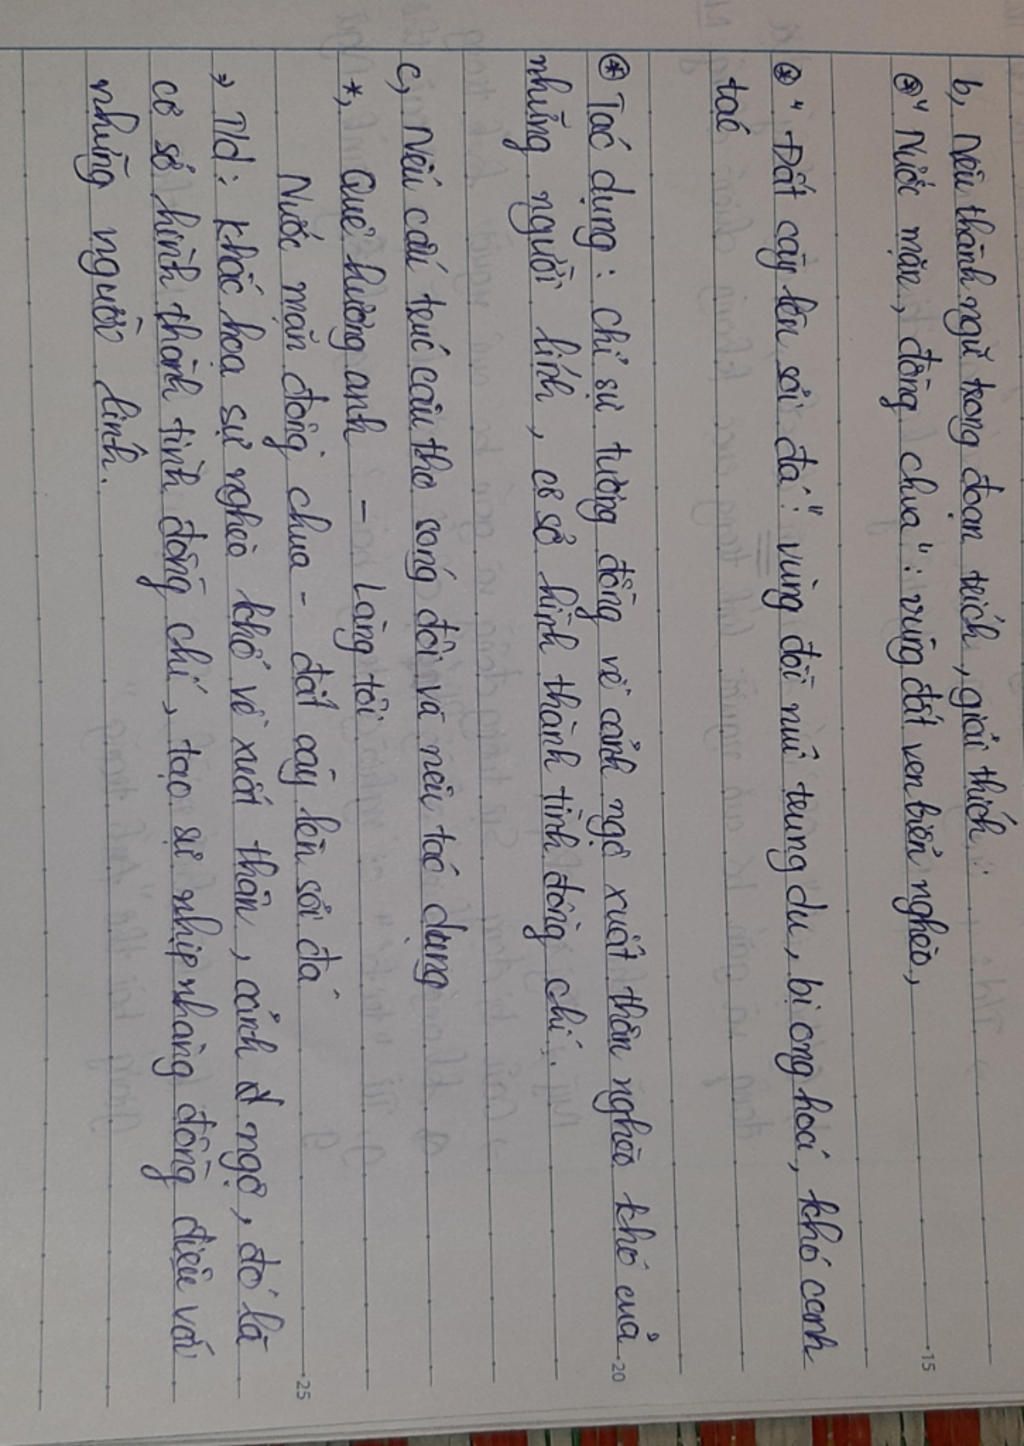 b, Nêu thành ngữ trong đoạn trích, giải thích:
⊛ "Nước mặn, đồng chua": vùng đất ven biển nghèo,
⊛ "Đất cày lên sỏi đá": vùng đồi núi trung du, bị ong hoá, khó canh
tác
⊛ Tác dụng: chỉ sự tương đồng về cảnh ngộ xuất thân nghèo khó của
những người lính, cơ sở hình thành tình đồng chí.
c, Nêu cấu trúc câu thơ song đôi và nêu tác dụng
*, Quê hương anh - Làng tôi
Nước mặn đồng chua - đất cày lên sỏi đá
→ T/d: khắc hoạ sự nghèo khó về xuất thân, cảnh ngộ, đó là
cơ sở hình thành tình đồng chí, tạo sự nhịp nhàng đồng điệu với
những người lính.
15
20
25